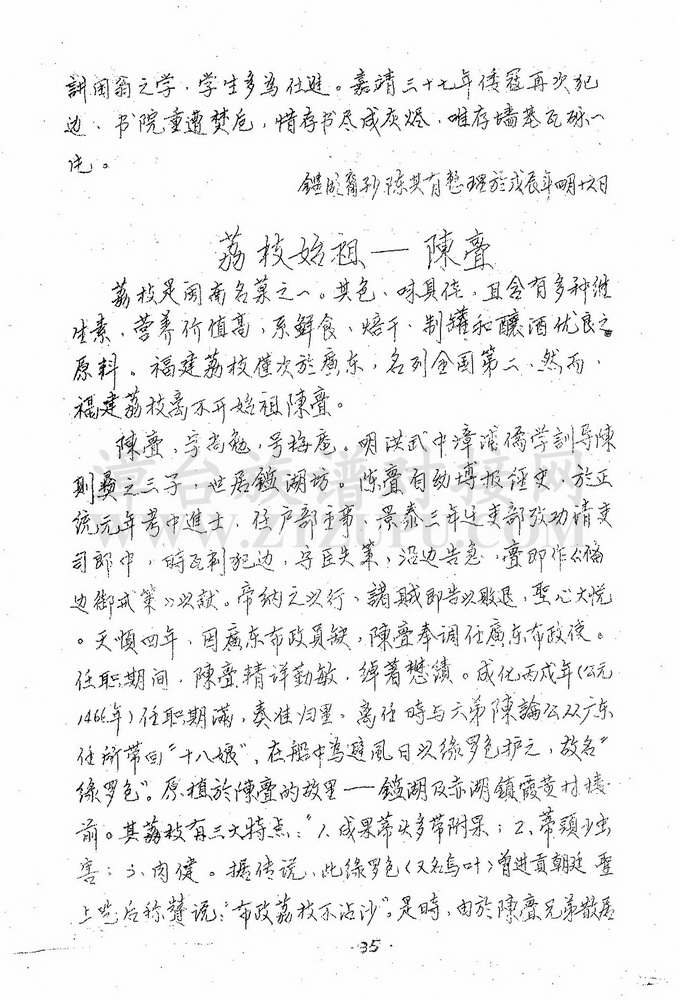 訓闻翁之学，学生多為仕進。嘉靖三十七年倭寇再次犯
边、书院重遭焚厄，惜存书尽成灰烬，唯存墙基瓦砾一
片。
鑑湖裔孙陈其有整理於戊辰年四月十六日
荔枝始祖——陳亹
荔枝是闽南名菓之一。其色、味具佳，且含有多种维
生素、营养价值高，系鲜食、焙干、制罐和釀酒优良之
原料。福建荔枝僅次於廣东，名列全国第二、然而，
福建荔枝离不开始祖陳亹。
陳亹，字尚勉，号梅庵。明洪武中漳浦儒学訓导陳
則彝之三子，世居鑑湖坊。陈亹自幼博报经史，於正
统元年考中進士，任户部主事，景泰三年迁吏部攷功清吏
司郎中，時瓦刺犯边，守臣失策，沿边告急，亹即作《备
边御戎策》以献。帝纳之以行、諸賊即告以敗退，聖心大悦
。天順四年，因廣东布政員缺，陳亹奉调任廣东布政使。
任职期间，陳亹精详勤敏，綽著懋绩。成化丙戌年(公元
1466年)任职期滿，奏准归里，离任時与六弟陳論公从广东
任所带回“十八娘”，在船中為避風日以綠罗色护之，故名“
綠罗色”。原植於陳亹的故里——鑑湖及赤湖鎮霞黄村楼
前。其荔枝有三大特点：“1、成果蒂头多带附果；2、蒂頭少虫
害；3、肉健。据传说，此綠罗色(又名乌叶)曾進貢朝廷 聖
上吃后称赞说：“布政荔枝不沾沙”。是時，由於陳亹兄弟散居
·35·